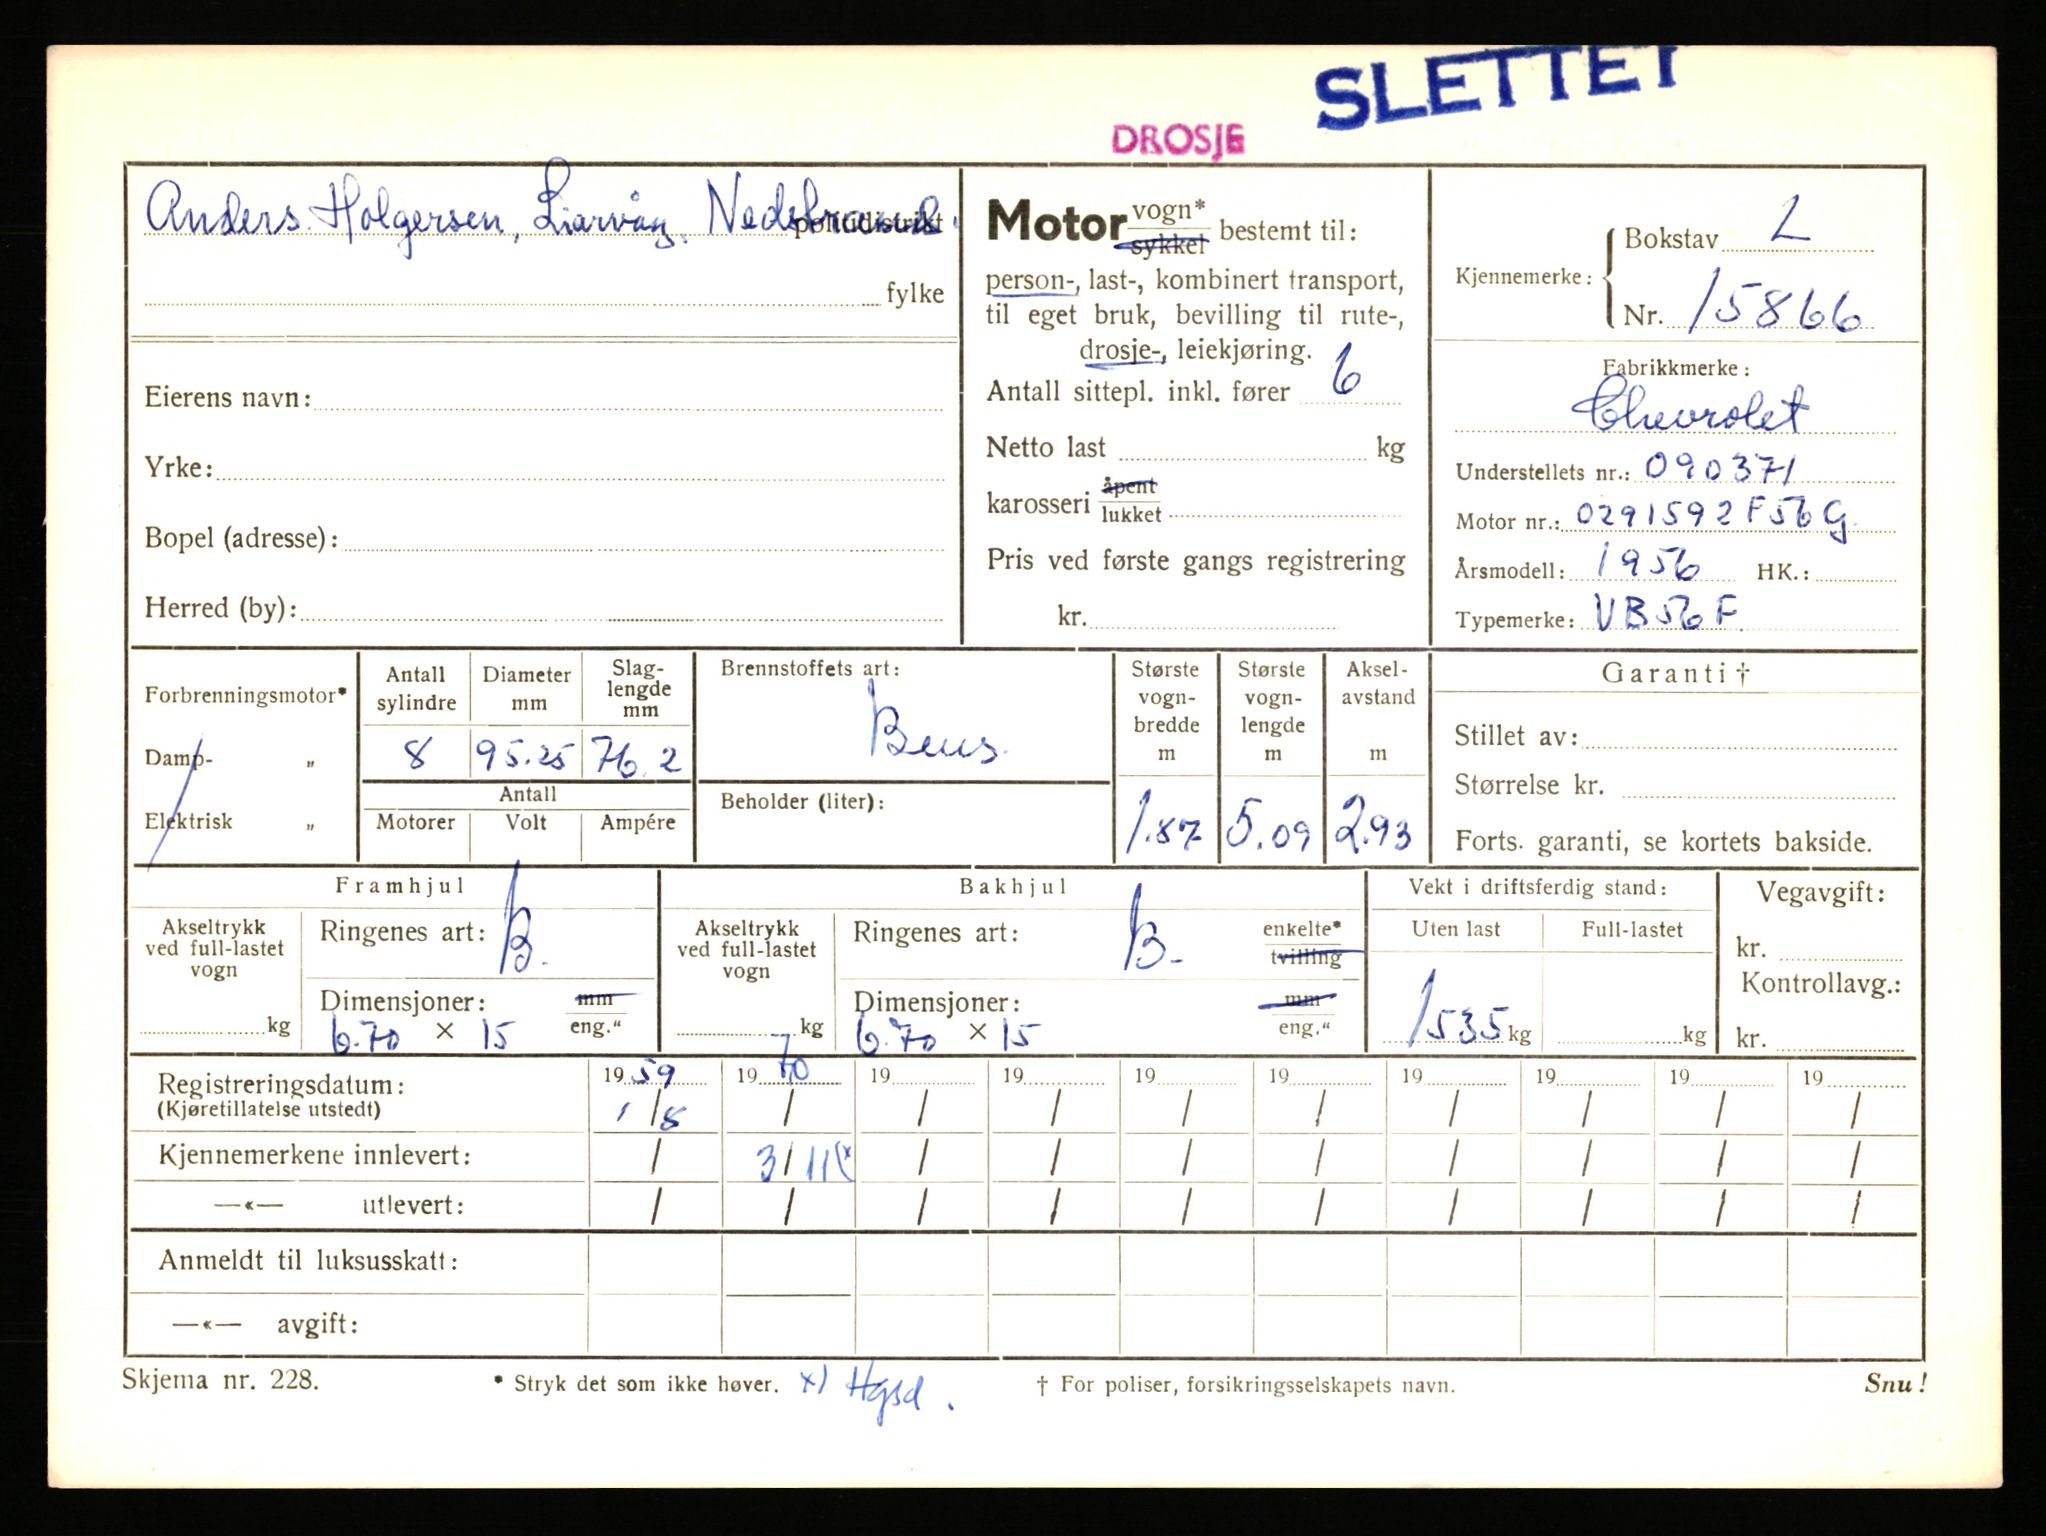 SLETTET
DROSJE
Anders Holgersen, Liarvåg, Nedstrand. politidistrikt
fylke
Eierens navn:
Yrke:
Bopel (adresse):
Herred (by):
Motor vogn* sykkel bestemt til:
person-, last-, kombinert transport,
til eget bruk, bevilling til rute-,
drosje-, leiekjøring.
Antall sittepl. inkl. fører 6
Netto last kg
karosseri åpent lukket
Pris ved første gangs registrering
kr.
Kjennemerke: Bokstav L
Nr. 15866
Fabrikkmerke:
Chevrolet
Understellets nr.: 090371
Motor nr.: 0291592F56G.
Årsmodell: 1956 HK.:
Typemerke: VB56F.
Forbrenningsmotor*
Damp- „
Elektrisk „
Antall sylindre
Diameter mm
Slag-
lengde
mm
8 95.25 76.2
Antall
Motorer Volt Ampére
Brennstoffets art:
Bens.
Beholder (liter):
Største
vogn-
bredde
m
1.87
Største
vogn-
lengde
m
5.09
Aksel-
avstand
m
2.93
Garanti †
Stillet av:
Størrelse kr.
Forts. garanti, se kortets bakside.
Framhjul
Akseltrykk
ved full-lastet
vogn
kg
Ringenes art: B.
Dimensjoner: mm eng."
6.70 × 15
Bakhjul
Akseltrykk
ved full-lastet
vogn
kg
Ringenes art: B. enkelte* tvilling
Dimensjoner: mm eng."
6.70 × 15
Vekt i driftsferdig stand:
Uten last Full-lastet
1535 kg kg
Vegavgift:
kr.
Kontrollavg.:
kr.
Registreringsdatum: 19 59 19 70 19 19 19 19 19 19 19 19
(Kjøretillatelse utstedt) 1/8 / / / / / / / / /
Kjennemerkene innlevert: / 3/11(x / / / / / / / /
—«— utlevert: / / / / / / / / / /
Anmeldt til luksusskatt:
—«— avgift:
Skjema nr. 228. * Stryk det som ikke høver. x) Hgsd. † For poliser, forsikringsselskapets navn. Snu!